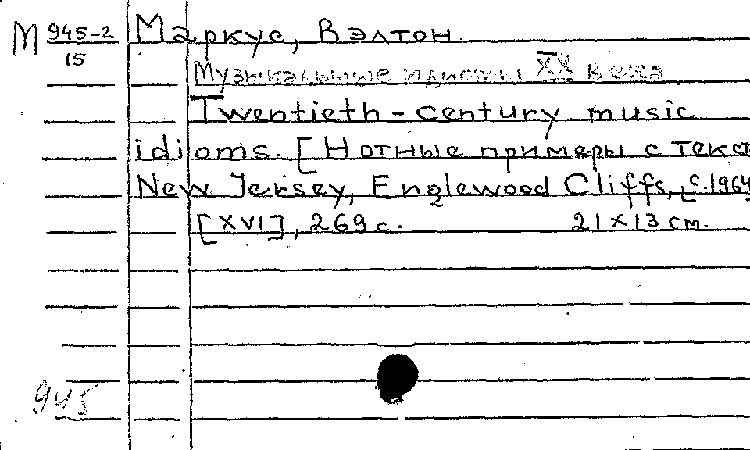 М 945-2
15
Маркус, Вэлтон.
Музыкальные идиомы XX века
Twentieth-century music
idioms. [Нотные примеры с текст
New Jersey, Englewood Cliffs, [c.1964
[XVI], 269 с. 21x13 см.
945